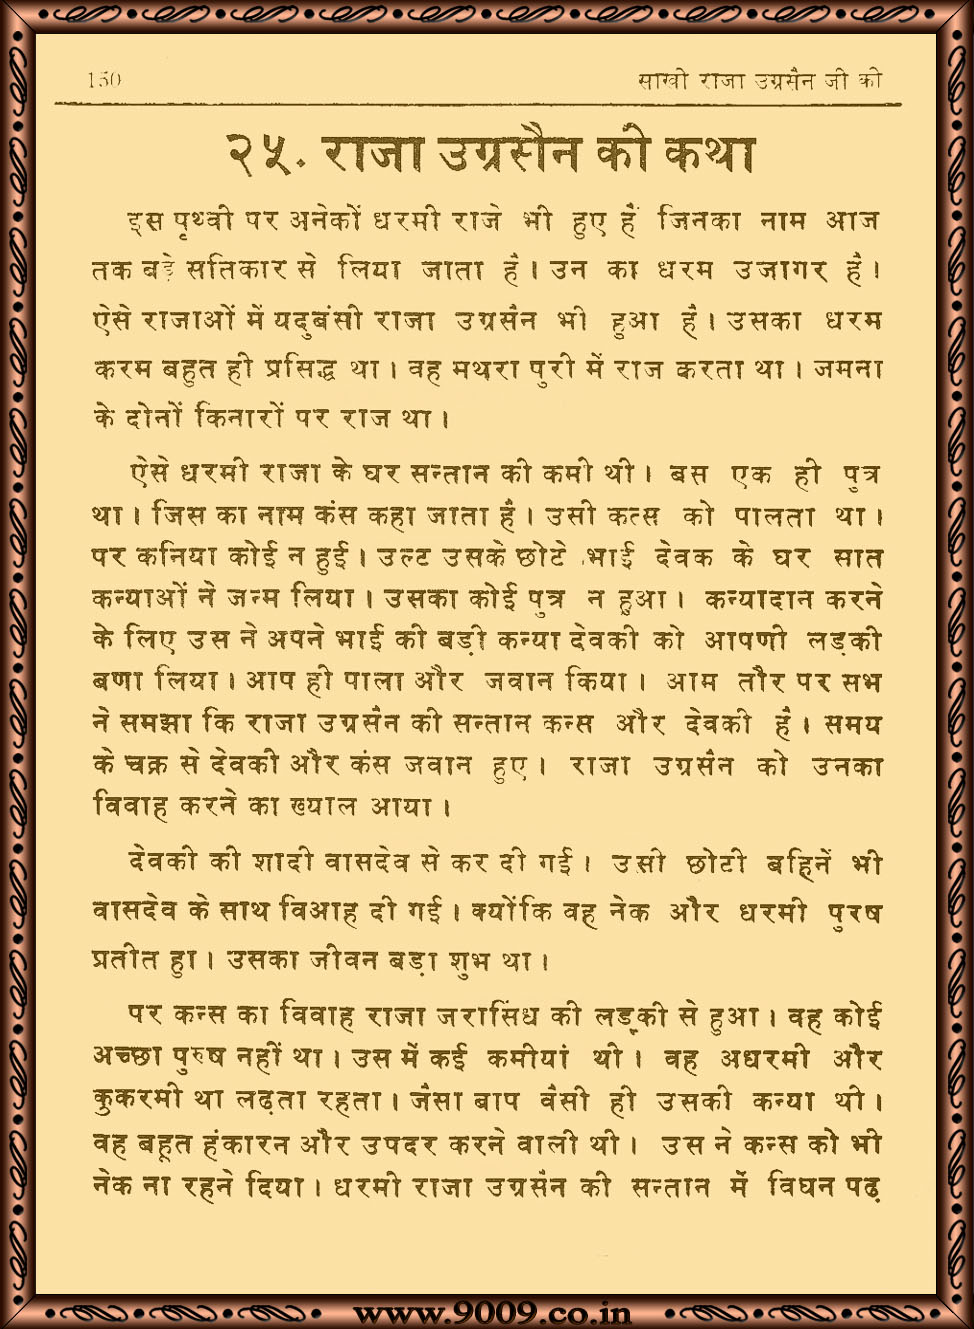 150 साखी राजा उग्रसैन जी की
२५. राजा उग्रसैन की कथा
इस पृथ्वी पर अनेकों धरमी राजे भी हुए हैं जिनका नाम आज
तक बड़े सतिकार से लिया जाता है। उन का धरम उजागर है।
ऐसे राजाओं में यदुबंसी राजा उग्रसैन भी हुआ है। उसका धरम
करम बहुत ही प्रसिद्ध था। वह मथरा पुरी में राज करता था। जमना
के दोनों किनारों पर राज था।
ऐसे धरमी राजा के घर सन्तान की कमी थी। बस एक ही पुत्र
था। जिस का नाम कंस कहा जाता है। उसी कत्स को पालता था।
पर कनिया कोई न हुई। उल्ट उसके छोटे भाई देवक के घर सात
कन्याओं ने जन्म लिया। उसका कोई पुत्र न हुआ। कन्यादान करने
के लिए उस ने अपने भाई की बड़ी कन्या देवकी को आपणी लड़की
बणा लिया। आप ही पाला और जवान किया। आम तौर पर सभ
ने समझा कि राजा उग्रसैन की सन्तान कन्स और देवकी है। समय
के चक्र से देवकी और कंस जवान हुए। राजा उग्रसैन को उनका
विवाह करने का ख्याल आया।
देवकी की शादी वासदेव से कर दी गई। उसी छोटी बहिनें भी
वासदेव के साथ विआह दी गई। क्योंकि वह नेक और धरमी पुरष
प्रतीत हुा। उसका जीवन बड़ा शुभ था।
पर कन्स का विवाह राजा जरासिंध की लड़की से हुआ। वह कोई
अच्छा पुरुष नहीं था। उस में कई कमीयां थी। वह अधरमी और
कुकरमी था लढ़ता रहता। जैसा बाप वैसी ही उसकी कन्या थी।
वह बहूत हंकारन और उपदर करने वाली थी। उस ने कन्स को भी
नेक ना रहने दिया। धरमी राजा उग्रसैन की सन्तान में विघन पढ़
www.9009.co.in